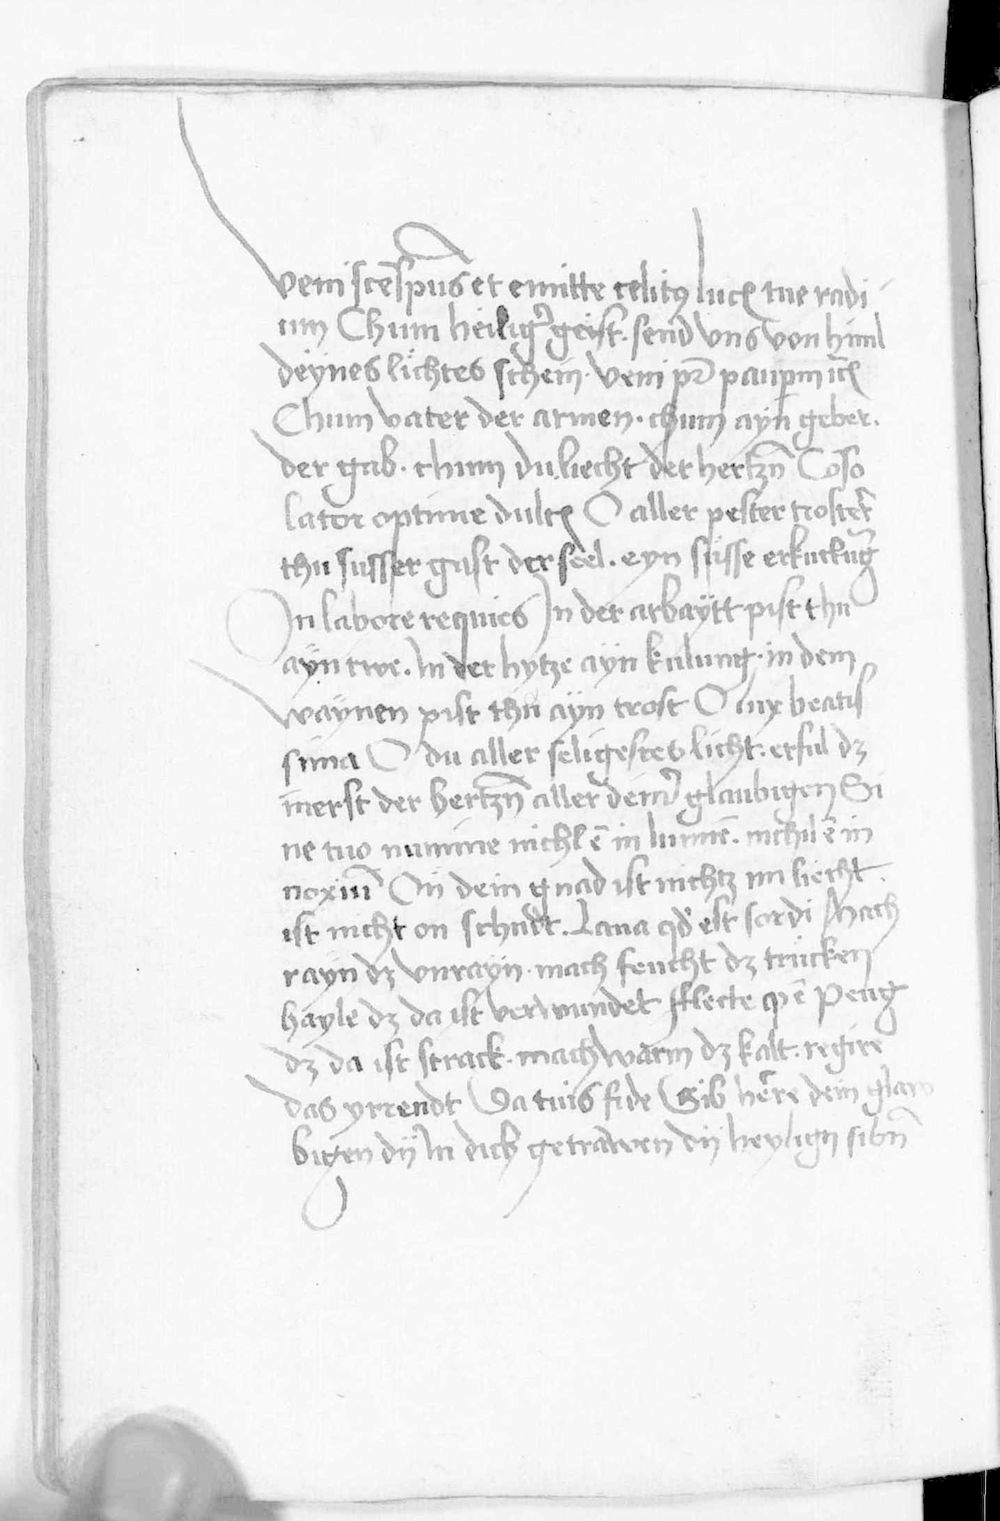 Veni sce spus et emitte celitꝰ lucꝭ tue radi
um Chum heiligr̃ geist. send vns von himl
deÿnes lichtes schein. Veni pr̃ paupm ic̃
Chum vater der armen. chum aÿn geber.
der gab. chum du liecht der hertzn̄ Coso
lator optime dulcꝭ O aller pester troster
thu susser gast der seel. eyn süsse erkucku͂g
In labore requies In der arbaÿtt pist thu
aÿn rwe. In der hytze aÿn kulung. in dem
waÿnen pist thu aÿn trost O lux beatis
sima O du aller seligestes licht. erful dz
inerst der hertzn̄ aller deinr̃ glaubigen Si
ne tuo numine nichl ē in lumīe. nichil ē in
noxiū On dein gnad ist nichtz im liecht.
ist nicht on schndt. Laua qd̓ est sordi Mach
raÿn dz vnraÿn. mach feucht dz trucken
haÿle dz da ist verwundet fflecte qd̓ ē Peug
dz da ist strack. mach warm dz kalt. regire
das yrrendt Da tuis fide Gib herre dein glaw
bigen dÿ In dich getrawen dÿ heylign sibn̄